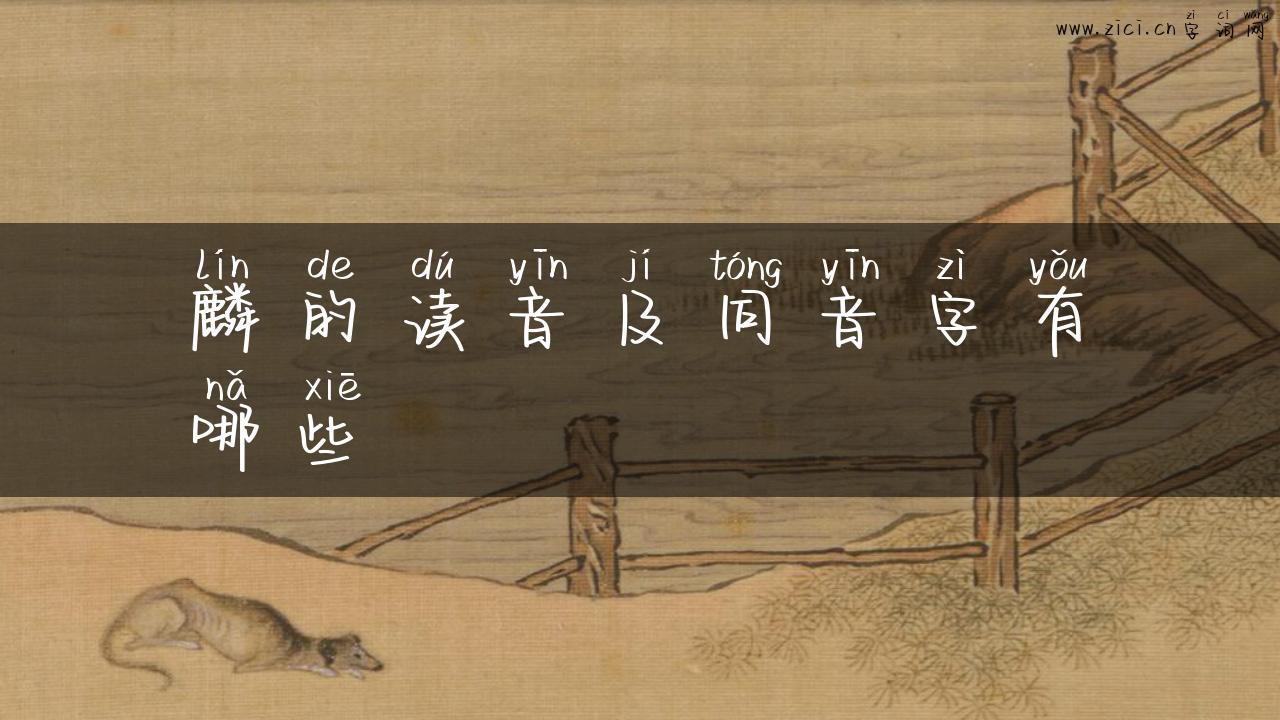 zì cí wǎng
www.zici.cn 字词网
lín de dú yīn jí tóng yīn zì yǒu
麟的读音及同音字有
nǎ xiē
哪些